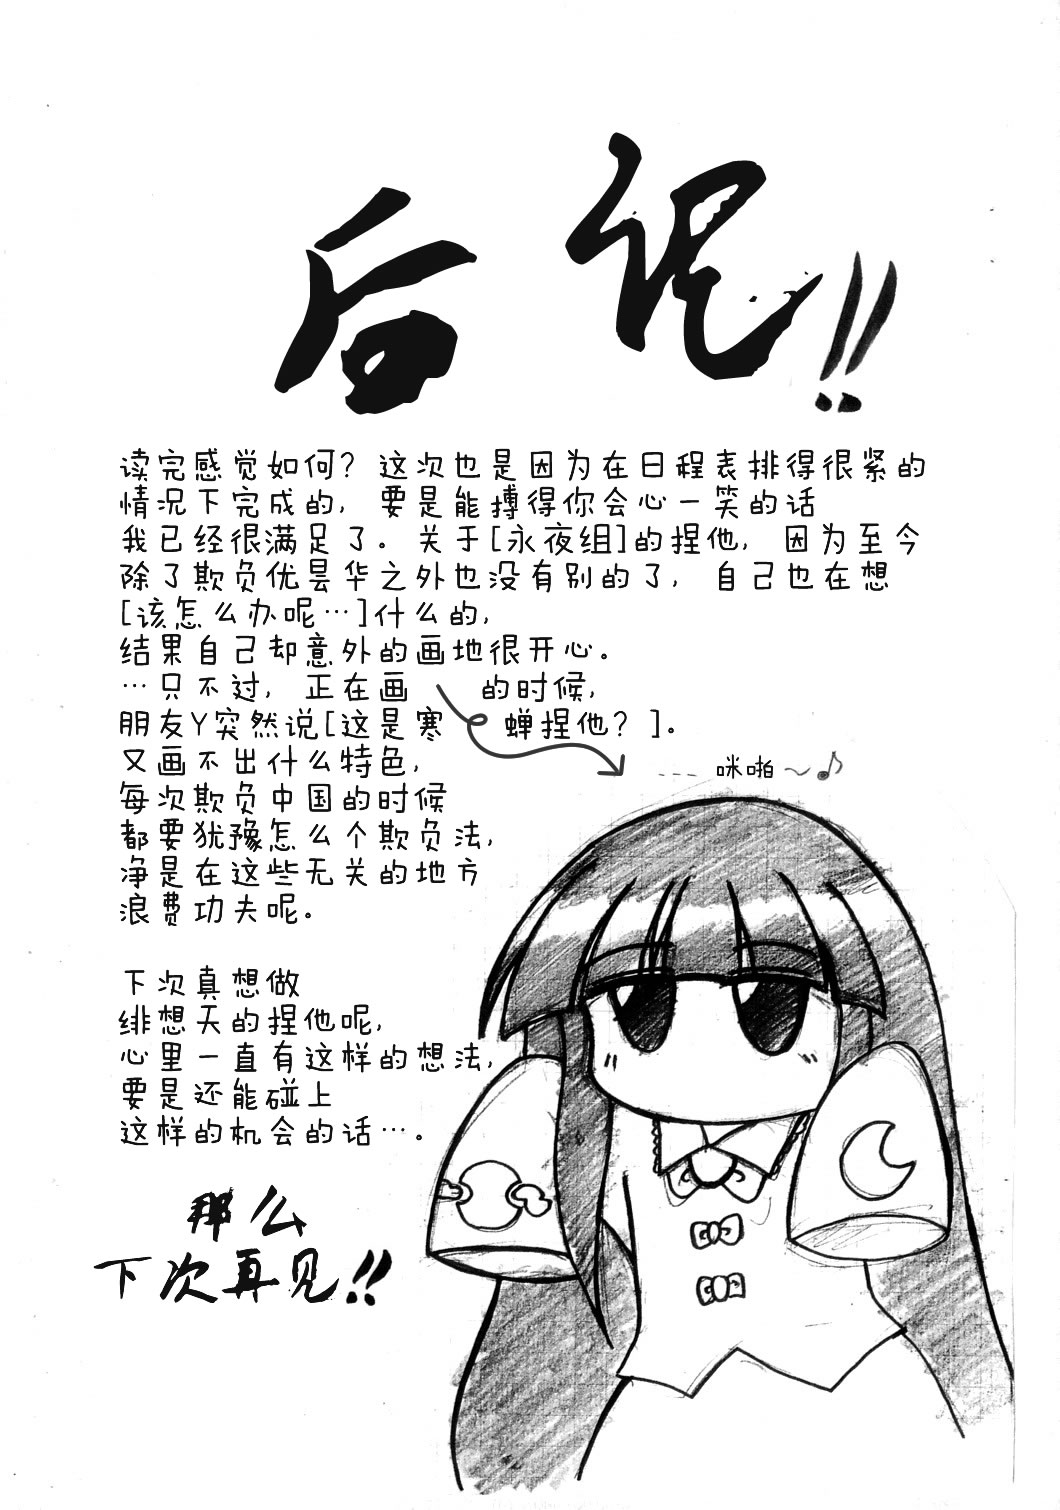 后记!!
读完感觉如何? 这次也是因为在日程表排得很紧的
情况下完成的, 要是能搏得你会心一笑的话
我已经很满足了。关于[永夜组]的捏他, 因为至今
除了欺负优昙华之外也没有别的了, 自己也在想
[该怎么办呢…]什么的,
结果自己却意外的画地很开心。
…只不过, 正在画 的时候,
朋友Y突然说[这是寒 蝉捏他? ]。
又画不出什么特色,
每次欺负中国的时候
都要犹豫怎么个欺负法,
净是在这些无关的地方
浪费功夫呢。
--- 咪啪～♪
下次真想做
绯想天的捏他呢,
心里一直有这样的想法,
要是还能碰上
这样的机会的话…。
那么
下次再见!!